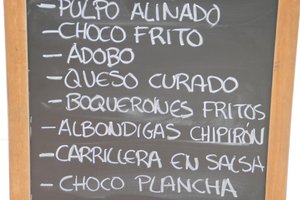 - PULPO ALIÑADO
- CHOCO FRITO
- ADOBO
- QUESO CURADO
- BOQUERONES FRITOS
- ALBONDIGAS CHIPIRÓN
- CARRILLERA EN SALSA
- CHOCO PLANCHA